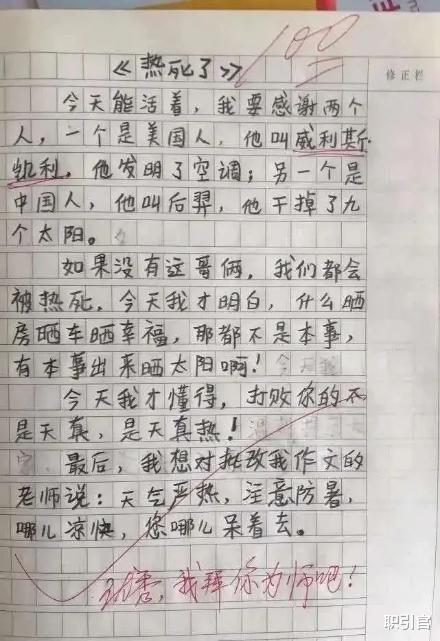 100
《热死了》
修正栏
今天能活着，我要感谢两个
人，一个是美国人，他叫威利斯·
凯利，他发明了空调；另一个是
中国人，他叫后羿，他干掉了九
个太阳。
如果没有这哥俩，我们都会
被热死，今天我才明白，什么晒
房晒车晒幸福，那都不是本事，
有本事出来晒太阳啊！
今天我才懂得，打败你的不
是天真，是天真热！
最后，我想对批改我作文的
老师说：天气严热，注意防暑，
哪儿凉快，您哪儿呆着去。
我拜你为师吧！
职引官